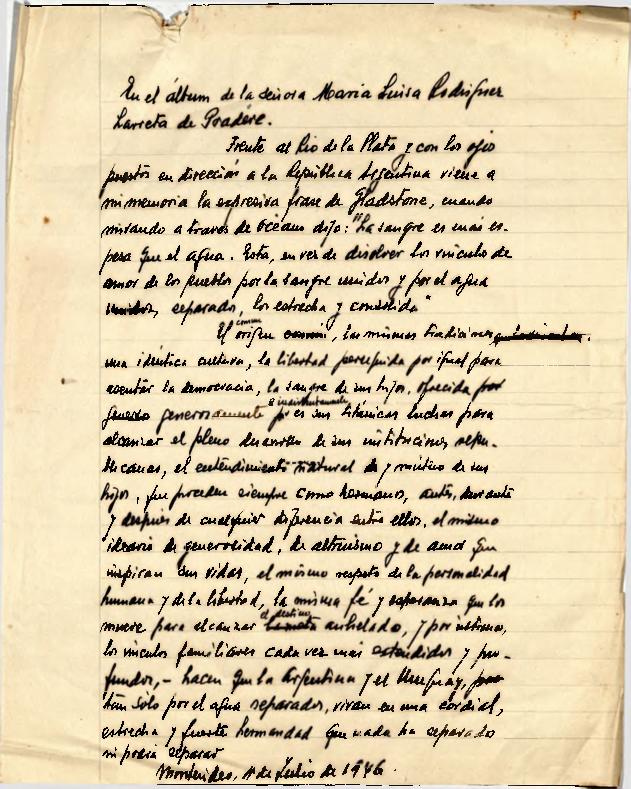 En el álbum de la señora Maria Luisa Rodriguez
Larreta de Pradère.
Frente al Rio de la Plata y con los ojos
puestos en dirección a la República Argentina viene a
mi memoria la expresiva frase de Gladstone, cuando
mirando a traves de Oceano dijo: "La sangre es más es-
pesa que el agua. Esta, en vez de disolver los vínculos de
amor de los pueblos por la sangre unidos y por el agua
unidos, separados, los estrecha y consolida"
comun
El origen común, las mismas tradiciones
una idéntica cultura, la libertad perseguida por igual para
acentuar la democracia, la sangre de sus hijos, ofrecida por
e indistintamente
generosamente es sus titánicas luchas para
alcanzar el pleno desarrollo de sus instituciones repu-
blicanas, el entendimiento natural de y mútuo de sus
hijos, que proceden siempre como hermanos, antes, durante
y después de cualquier diferencia entre ellos, el mismo
ideario de generosidad, de altruismo y de amor que
inspiran sus vidas, el mismo respeto de la personalidad
humana y de la libertad, la misma fé y esperanza que los
el destino
mueve para alcanzar la meta anhelado, y por último,
los vínculos familiares cada vez más extendidos y pro-
fundos,- hacen que la Argentina y el Uruguay,
tan solo por el agua separados, vivan en una cordial,
estrecha y fuerte hermandad que nada ha separado
ni podrá separar
Montevideo, de Julio de 1946.